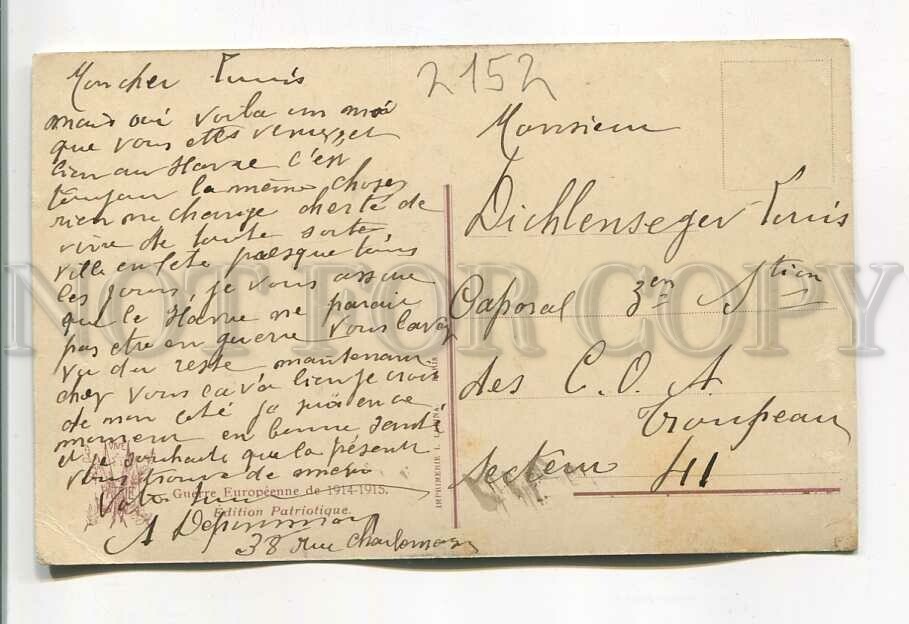 2152
Mon cher Louis
mais oui voila un moi
que vous ettes venu et
bien au Havre c'est
toujour la même choses
rien ne change cherté de
vivre de toute sorte
ville en fete presque tous
les jours, je vous assure
que le Havre ne parait
pas etre en guerre vous lavez
vu du reste maintenant
chez vous ca va bien je crois
de mon coté je suis en ce
moment en bonne santé
et je souhaite que la présente
vous trouve de meme
A
38 rue Charlemagne
VIVE
Guerre Européenne de 1914-1915.
Édition Patriotique.
IMPRIMERIE
PARIS
Monsieur
Dichlenseger Louis
Caporal 3em Stion
des C. O. A
Troupeau
Secteur 41
NOT FOR COPY